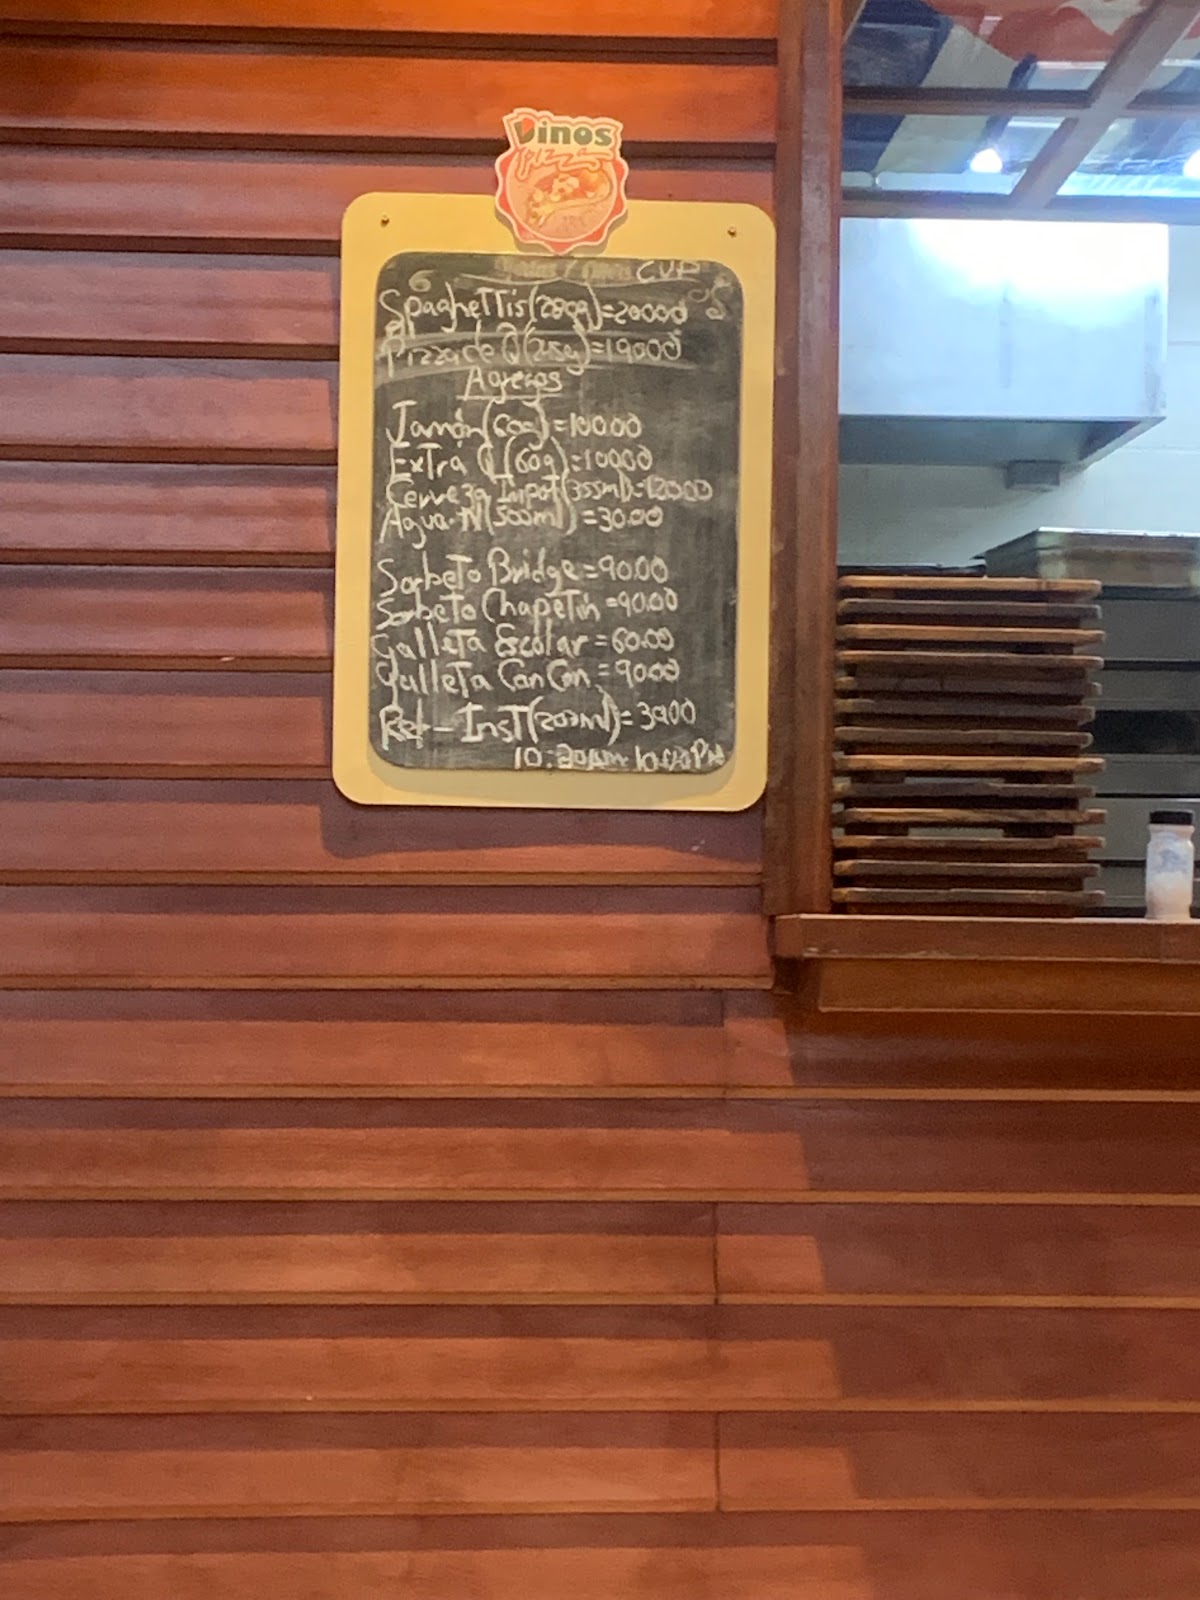 Dinos
Pizza
CUP
Spaghettis(280g)=200.00
Pizza de Q(215g)=190.00
Agregos
Jamón(60g)=100.00
Extra Q(60g)=100.00
Cerveza Impot(355ml)=120.00
Agua-N(500ml)=30.00
Sorbeto Bridge=90.00
Sorbeto Chapetin=90.00
Galleta Escolar=60.00
Galleta Can Can=90.00
Ref-Inst(200ml)=39.00